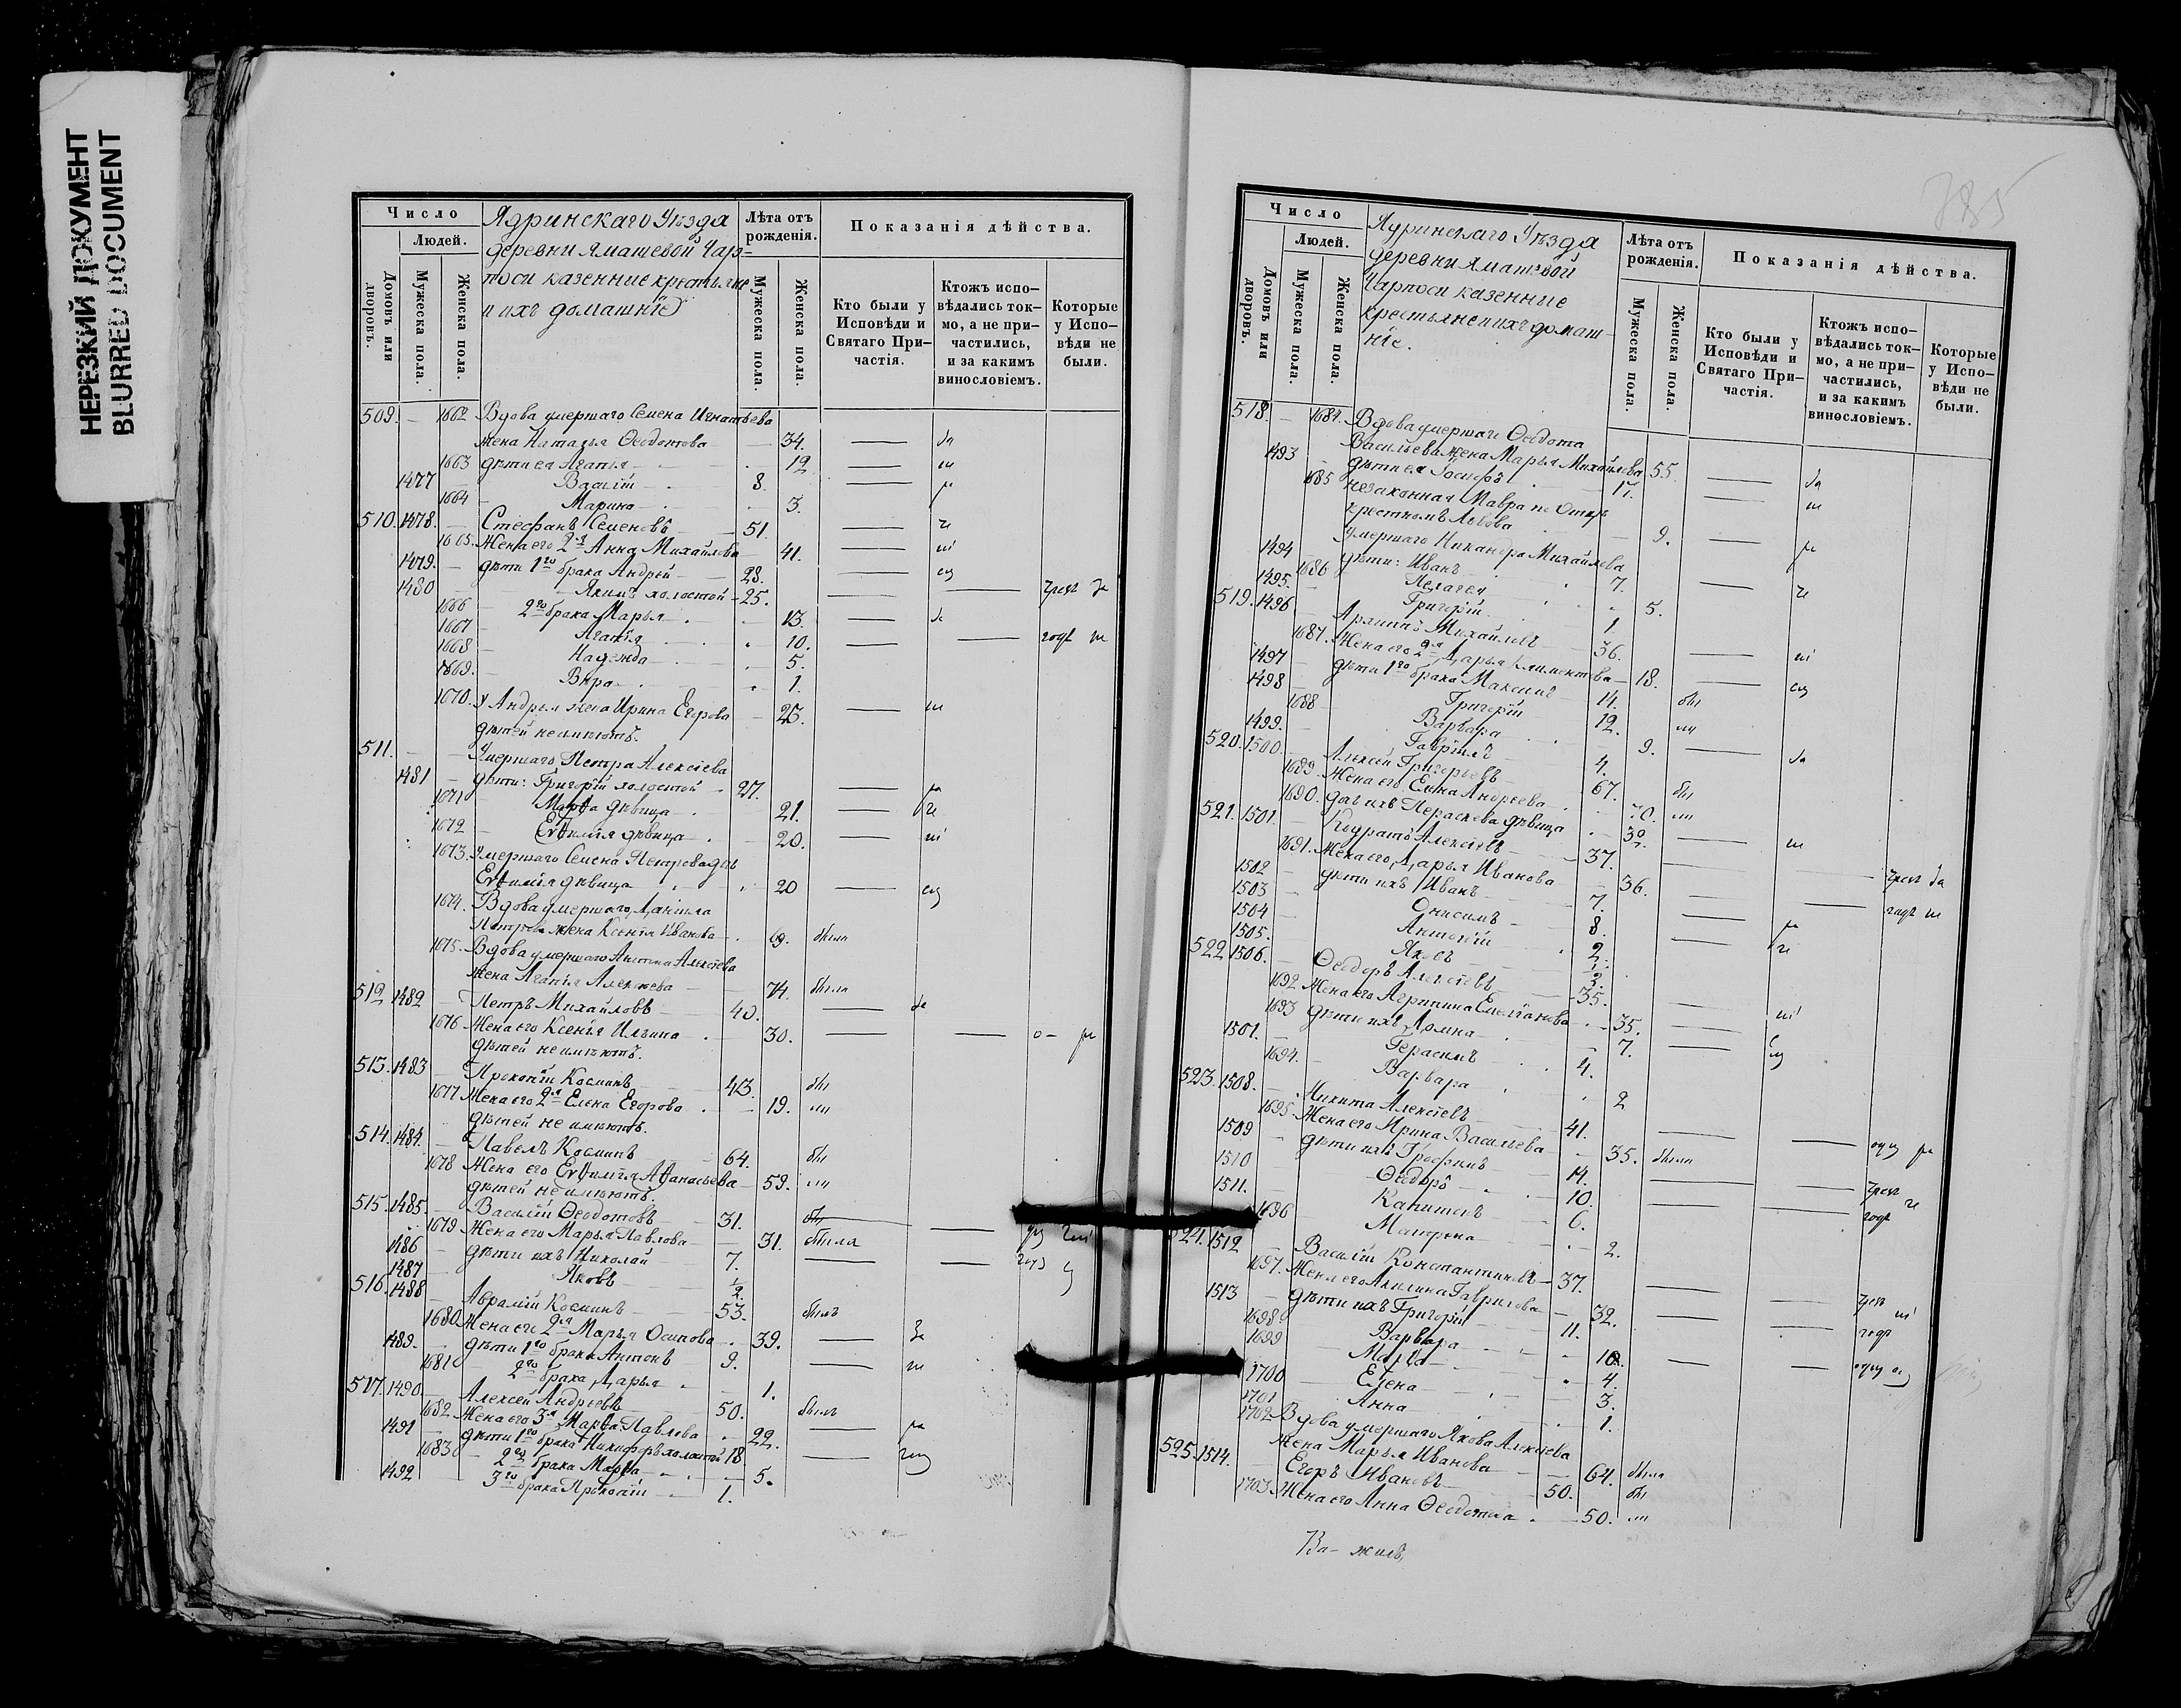 НЕРЕЗКИЙ ДОКУМЕНТ
BLURRED DOCUMENT
Число
Людей.
Домовъ или дворовъ.
Мужеска пола.
Женска пола.
Ядринскаго Уѣзда
деревни Ямашевой Чар-
поси казенные крестьяне
и ихъ домашніе
Лѣта отъ рожденія.
Мужеска пола.
Женска пола.
Показанія дѣйства.
Кто были у Исповѣди и Святаго При-частія.
Ктожъ испо-вѣдались ток-мо, а не при-частились, и за какимъ винословіемъ.
Которые у Испо-вѣди не были.
509. 1662 Вдова умершаго Семена Игнатьева
жена Наталья Ѳеодотова 34.
1663 дѣти ея Агапія 12
1477 Василій 8.
1664 Марина 3.
510. 1478. Стефанъ Семеновъ 51.
1665. Жена его 2я Анна Михайлова 41.
1479. дѣти 1го брака Андрей 28.
1480 Якимъ холостой 25.
1666 2го брака Марья 13.
1667 Агапія 10.
1668 Надежда 5.
1669. Вѣра 1.
1670. У Андрея жена Ирина Егорова 25.
дѣтей неимѣютъ.
511. Умершаго Петра Алексѣева
1481 дѣти: Григорій холостой 27.
1671 Марѳа дѣвица 21.
1672 Евѳимія дѣвица 20.
1673. Умершаго Семена Петрова дочь
Евѳимія дѣвица 20
1674. Вдова умершаго Даніила
Петрова жена Ксенія Иванова 69. была
1675. Вдова умершаго Антипа Алексѣева
жена Агапія Алексѣева 74. была
512 1482 Петръ Михайловъ 40.
1676 Жена его Ксенія Ильина 30.
дѣтей неимѣютъ.
513. 1483 Прокопій Косминъ 43. былъ
1677 Жена его 2я Елена Егорова 19.
дѣтей не имѣютъ.
514. 1484. Павелъ Косминъ 64. былъ
1678 Жена его Евѳимія Аѳанасьева 59.
дѣтей неимѣютъ.
515. 1485. Василій Ѳеодотовъ 31.
1679 Жена его Марья Павлова 31. была
1486 дѣти ихъ Николай 7.
1487 Яковъ 1/2.
516. 1488 Аврамій Косминъ 53. былъ
1680 Жена его 2я Марья Осипова 39.
1489. дѣти 1го брака Антонъ 9.
1681 2го брака Дарья 1.
517. 1490. Алексѣй Андреевъ 50. былъ
1682 Жена его 3я Марѳа Павлова 22.
1491 дѣти 1го брака Никифоръ холостой 18
1683 2го брака Марѳа 5.
1492 3го брака Прокопій 1.
785
Число
Людей.
Домовъ или дворовъ.
Мужеска пола.
Женска пола.
Ядринскаго Уѣзда
деревни Ямашевой
Чарпоси казенные
крестьяне и ихъ домаш-
ніе.
Лѣта отъ рожденія.
Мужеска пола.
Женска пола.
Показанія дѣйства.
Кто были у Исповѣди и Святаго При-частія.
Ктожъ испо-вѣдались ток-мо, а не при-частились, и за какимъ винословіемъ.
Которые у Испо-вѣди не были.
518. 1684. Вдова умершаго Ѳеодота
Васильева жена Марья Михайлова 55.
1493 дѣти ея Іосифъ 17.
1685 незаконная Мавра по Отцѣ
крестномъ Львова 9.
умершаго Никандра Михайлова
1494 дѣти: Иванъ 7.
1686 Пелагея 5.
1495. Григорій 1.
519. 1496 Архипъ Михайловъ 36.
1687. Жена его 2я Дарья Климентова 18.
1497 дѣти 1го брака Максимъ 14.
1498 Григорій 12.
1688 Варвара 9.
1499. Гавріилъ 4.
520. 1500. Алексѣй Григорьевъ 67.
1689. Жена его Елена Андреева 70.
1690. дочь ихъ Параскева дѣвица 30.
521. 1501 Кодратъ Алексѣевъ 37.
1691. Жена его Дарья Иванова 36.
1502 дѣти ихъ Иванъ 7.
1503 Онисимъ 8.
1504 Антоній 2.
1505. Яковъ 1/2.
522 1506. Ѳеодоръ Алексѣевъ 35.
1692 Жена его Агрипина Емеліанова 35.
1693 дѣти ихъ Домна 7.
1507. Герасимъ 4.
1694. Варвара 2
523. 1508. Никита Алексѣевъ 41.
1695. Жена его Ирина Васильева 35. была
1509 дѣти ихъ Трофимъ 14.
1510 Ѳеодоръ 10.
1511. Капитонъ 6.
1696 Матрена 2.
524. 1512 Василій Константиновъ 37.
1697. Жена его Акилина Гаврилова 32.
1513 дѣти ихъ Григорій 11.
1698 Варвара 10.
1699 Марѳа 4.
1700 Елена 3.
1701 Анна 1.
1702 Вдова умершаго Якова Алексѣева
жена Марья Иванова 64. была
525. 1514. Егоръ Ивановъ 50. былъ
1703. Жена его Анна Ѳеодотова 50.